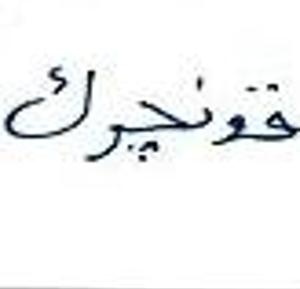 قونچرك